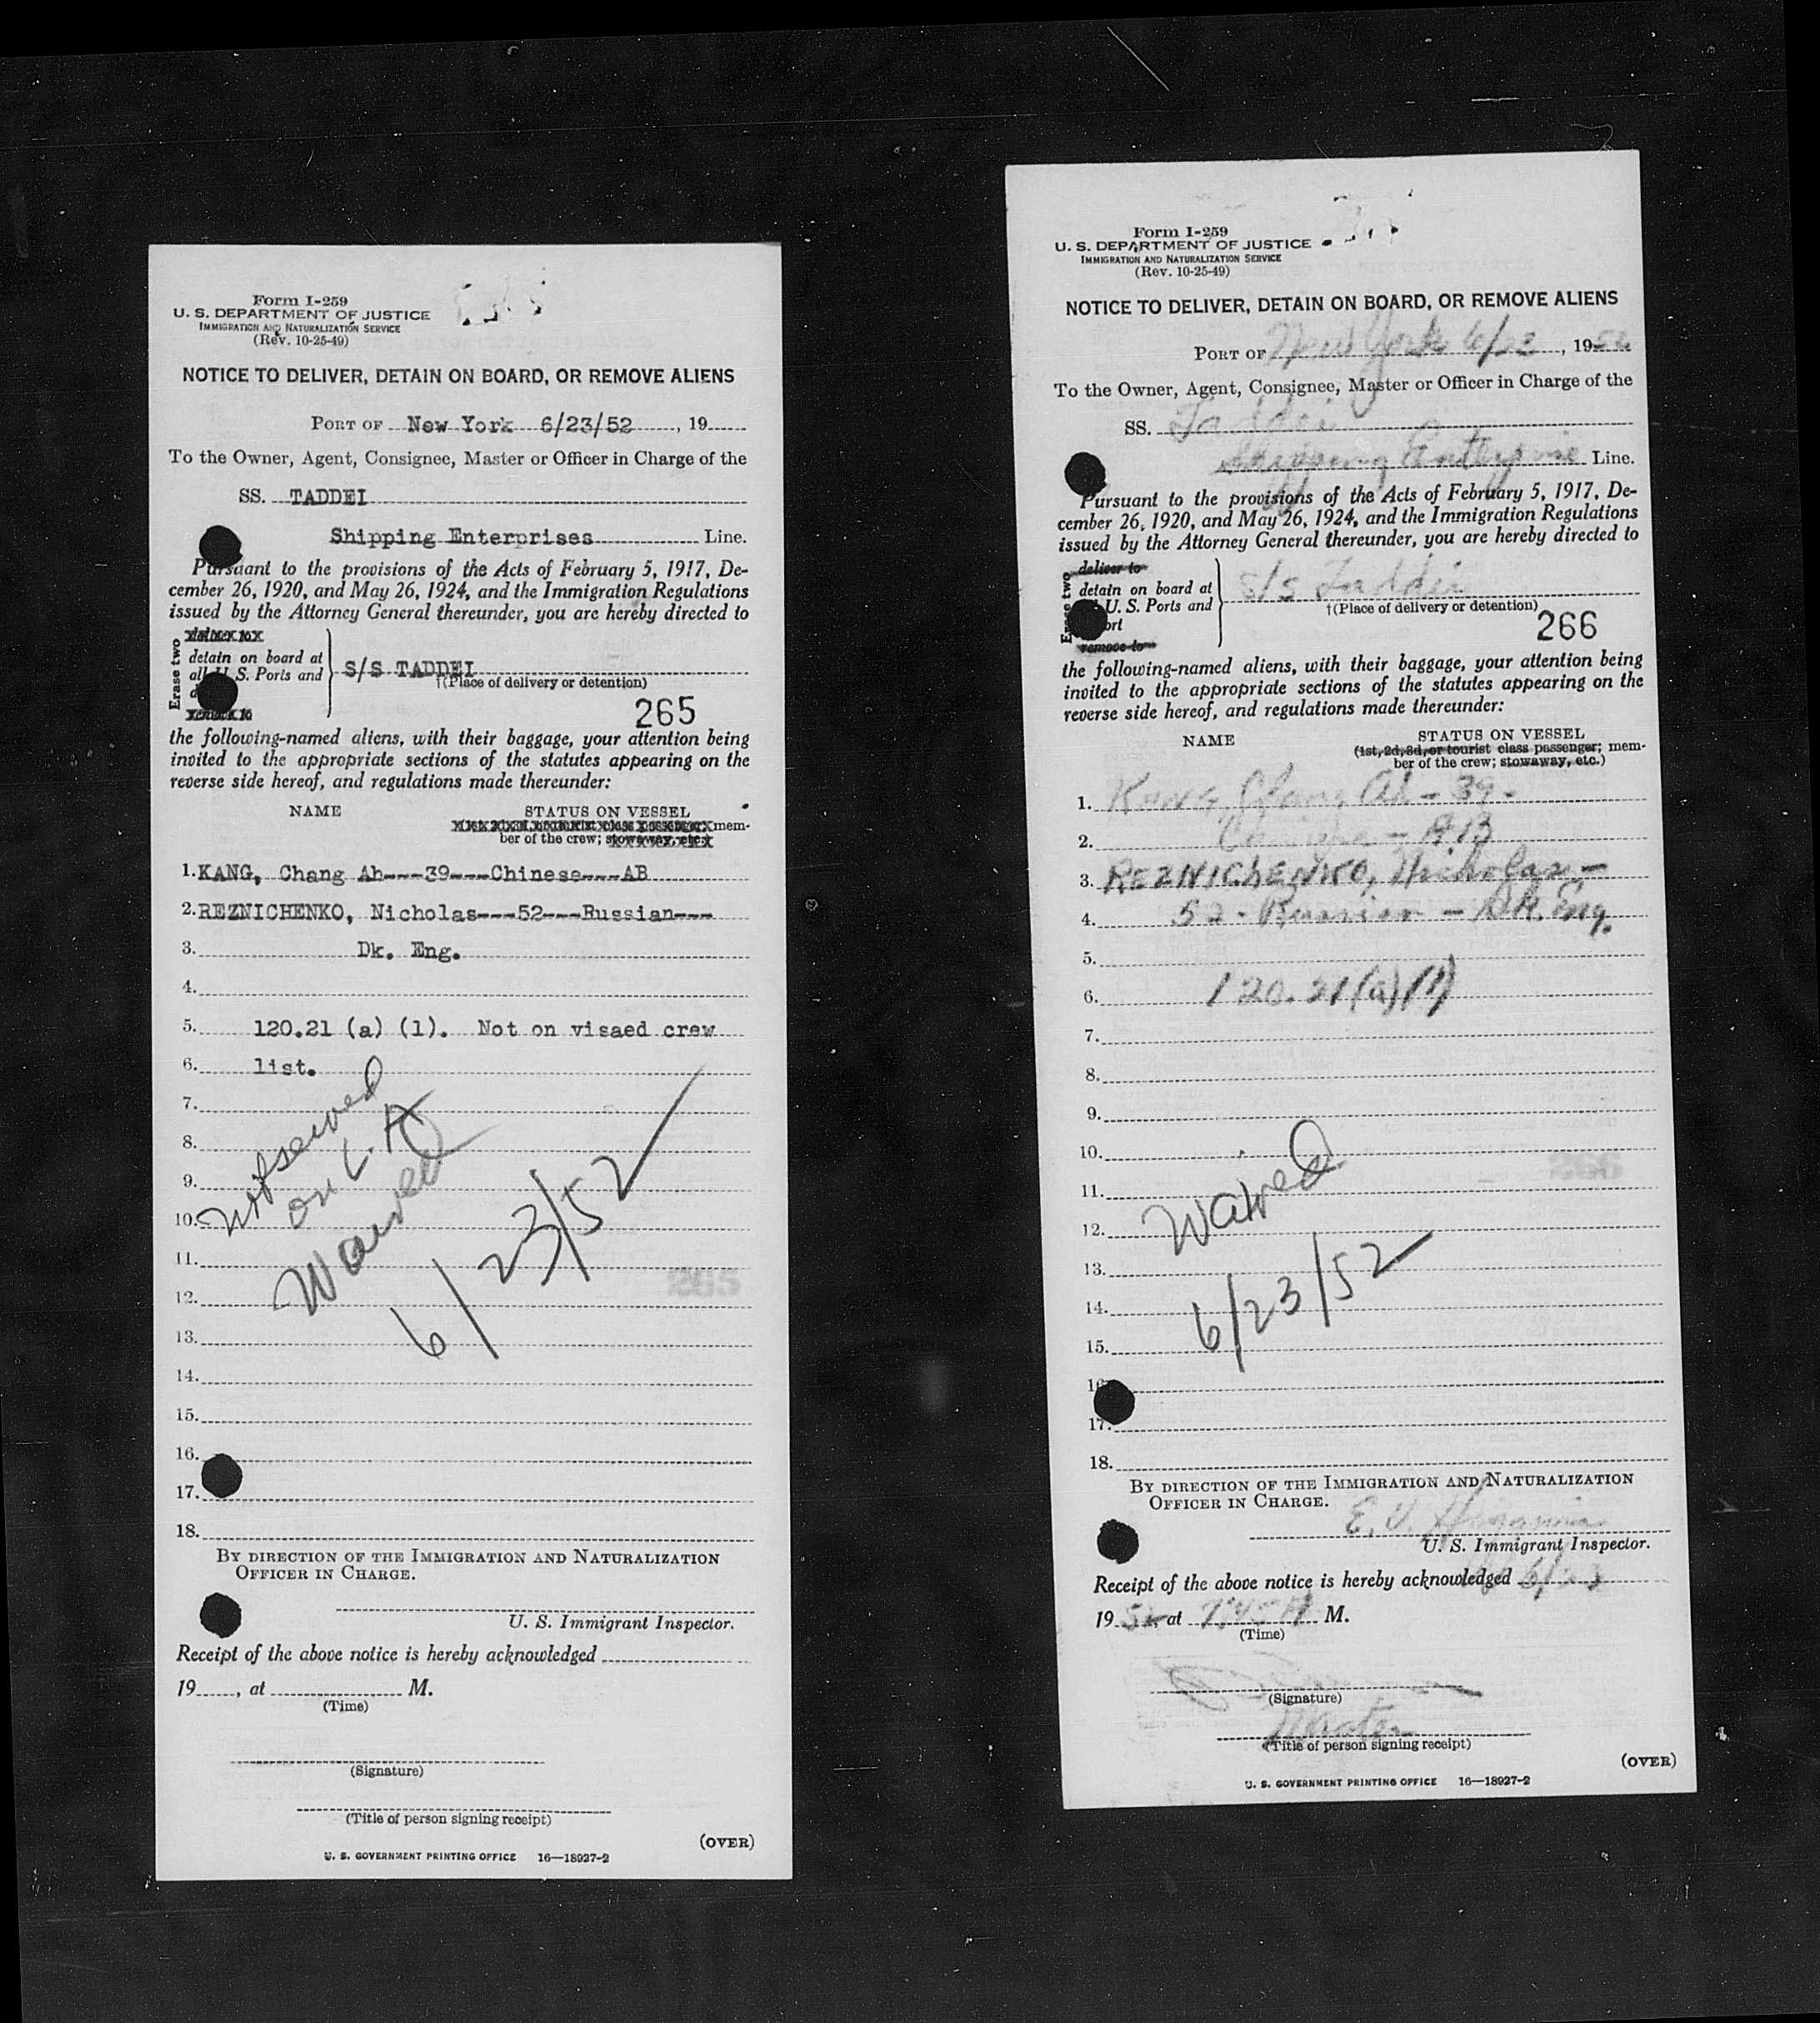 Form I-259
U. S. DEPARTMENT OF JUSTICE
IMMIGRATION AND NATURALIZATION SERVICE
(Rev. 10-25-49)
NOTICE TO DELIVER, DETAIN ON BOARD, OR REMOVE ALIENS
PORT OF New York 6/23/52, 19
To the Owner, Agent, Consignee, Master or Officer in Charge of the
SS. TADDEI
Shipping Enterprises Line.
Pursuant to the provisions of the Acts of February 5, 1917, De-
cember 26, 1920, and May 26, 1924, and the Immigration Regulations
issued by the Attorney General thereunder, you are hereby directed to
Erase two
deliver to
detain on board at
all U. S. Ports and
S/S TADDEI
†(Place of delivery or detention)
remove to
265
the following-named aliens, with their baggage, your attention being
invited to the appropriate sections of the statutes appearing on the
reverse side hereof, and regulations made thereunder:
NAME STATUS ON VESSEL
mem-
ber of the crew; stowaway, etc.)
1. KANG, Chang Ah---39---Chinese---AB
2. REZNICHENKO, Nicholas---52---Russian---
3. Dk. Eng.
4.
5. 120.21 (a) (1). Not on visaed crew
6. list.
7.
8.
9.
10.
11.
12.
13.
14.
15.
16.
17.
18.
Not served
on L.A
Waived
6/23/52
265
BY DIRECTION OF THE IMMIGRATION AND NATURALIZATION
OFFICER IN CHARGE.
U. S. Immigrant Inspector.
Receipt of the above notice is hereby acknowledged
19, at M.
(Time)
(Signature)
(Title of person signing receipt)
(OVER)
U. S. GOVERNMENT PRINTING OFFICE 16—18927-2
Form I-259
U. S. DEPARTMENT OF JUSTICE
IMMIGRATION AND NATURALIZATION SERVICE
(Rev. 10-25-49)
NOTICE TO DELIVER, DETAIN ON BOARD, OR REMOVE ALIENS
PORT OF New York 6/23, 1952
To the Owner, Agent, Consignee, Master or Officer in Charge of the
SS. Taddei
Shipping Enterprise Line.
Pursuant to the provisions of the Acts of February 5, 1917, De-
cember 26, 1920, and May 26, 1924, and the Immigration Regulations
issued by the Attorney General thereunder, you are hereby directed to
Erase two
deliver to
detain on board at
U. S. Ports and
remove to
S/S Taddei
†(Place of delivery or detention)
266
the following-named aliens, with their baggage, your attention being
invited to the appropriate sections of the statutes appearing on the
reverse side hereof, and regulations made thereunder:
NAME STATUS ON VESSEL
(1st, 2d, 3d, or tourist class passenger; mem-
ber of the crew; stowaway, etc.)
1. KANG, Chang Ah - 39 -
2. Chinese - AB
3. REZNICHENKO, Nicholas -
4. 52 - Russian - Dk. Eng.
5.
6. 120.21(a)(1)
7.
8.
9.
10.
11.
12.
13.
14.
15.
16
17.
18.
Waived
6/23/52
BY DIRECTION OF THE IMMIGRATION AND NATURALIZATION
OFFICER IN CHARGE.
E. V.
U. S. Immigrant Inspector.
Receipt of the above notice is hereby acknowledged 6/23
1952 at 7:45 A M.
(Time)
(Signature)
Master
(Title of person signing receipt)
(OVER)
U. S. GOVERNMENT PRINTING OFFICE 16—18927-2